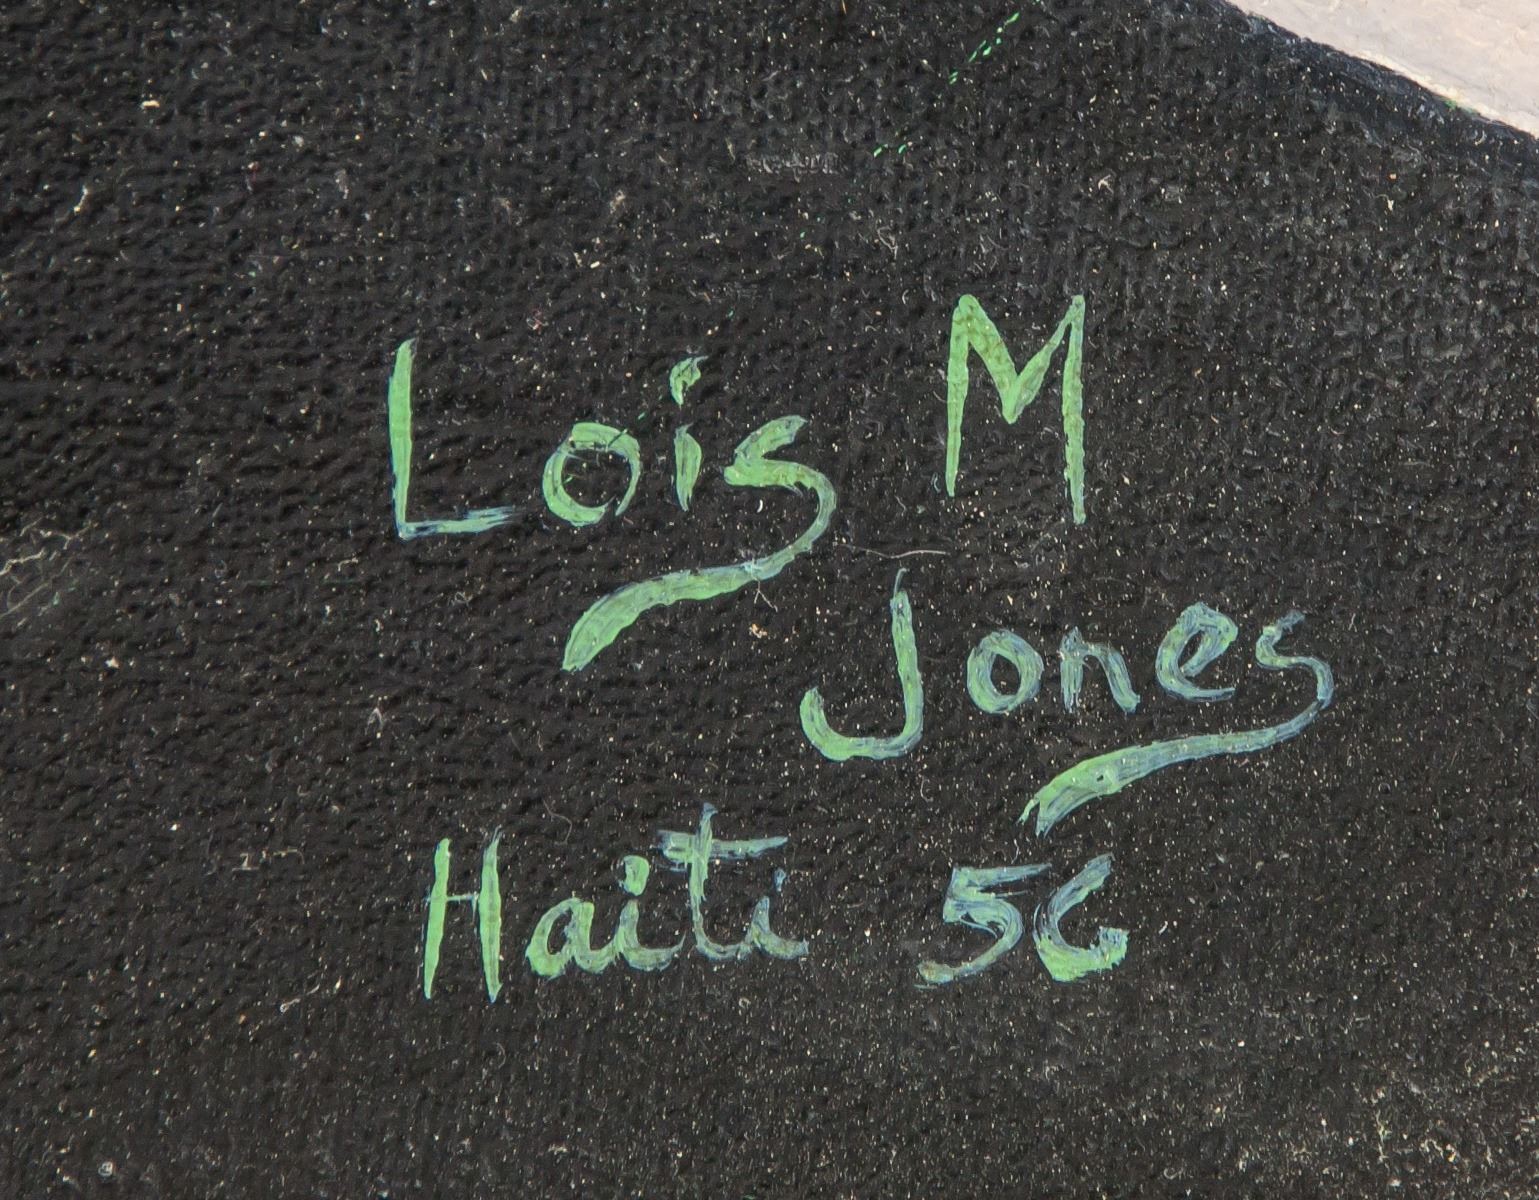 Lois M
Jones
Haiti 56